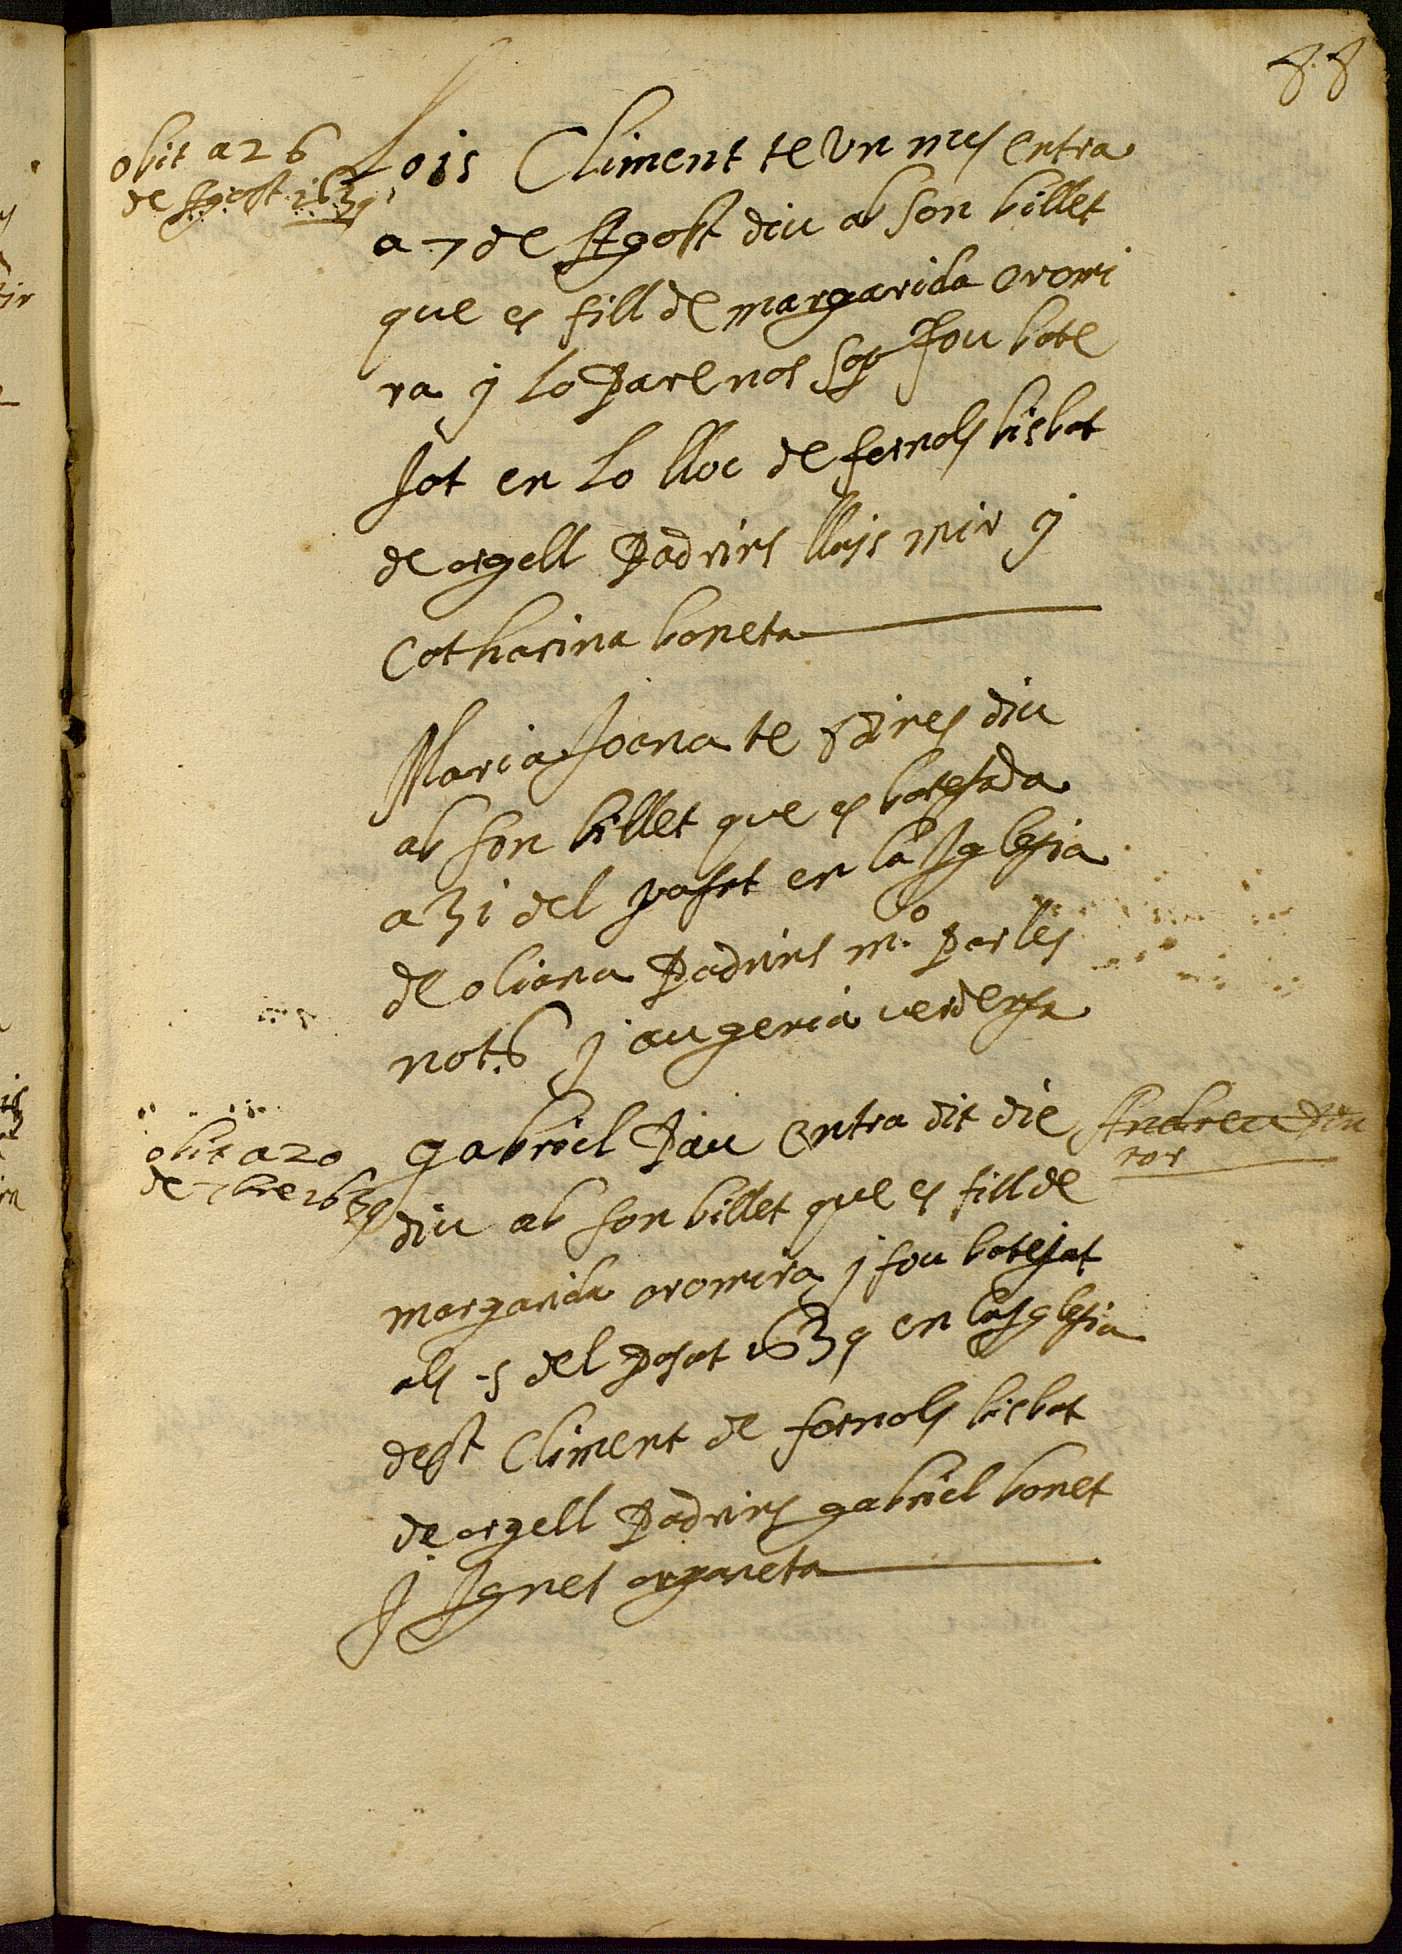 88
obit a 26
de Agost 1639
Lois Climent te vn mes entra
a 7 de Agost diu ab son billet
que es fill de margarida oromi
ra y lo Pare nos sap fou bate
jat en lo lloc de fornols bisbat
de orgell Padrins lluis mir y
Catharina boneta
Maria Joana te dies diu
ab son billet que es batejada
a 31 del pasat en la Iglesia
de oliana Padrins m.º Parles
not. y augenia
obit a 20
de 7bre 1639
gabriel Pau entra dit die Andreu Pin
tor
diu ab son billet que es fill de
margarida oromira y fou batejat
als 5 del Pasat 1639 en la Iglesia
de st Climent de fornols bisbat
de orgell Padrins gabriel bonet
y Ignes organeta